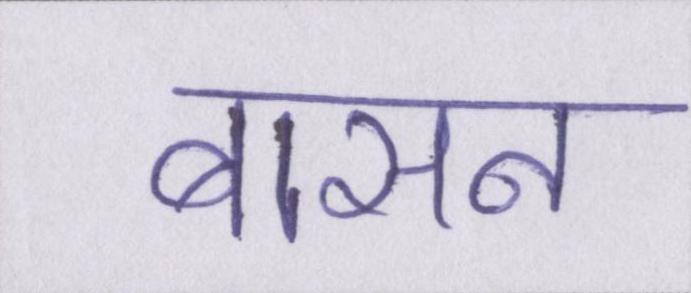 बासन